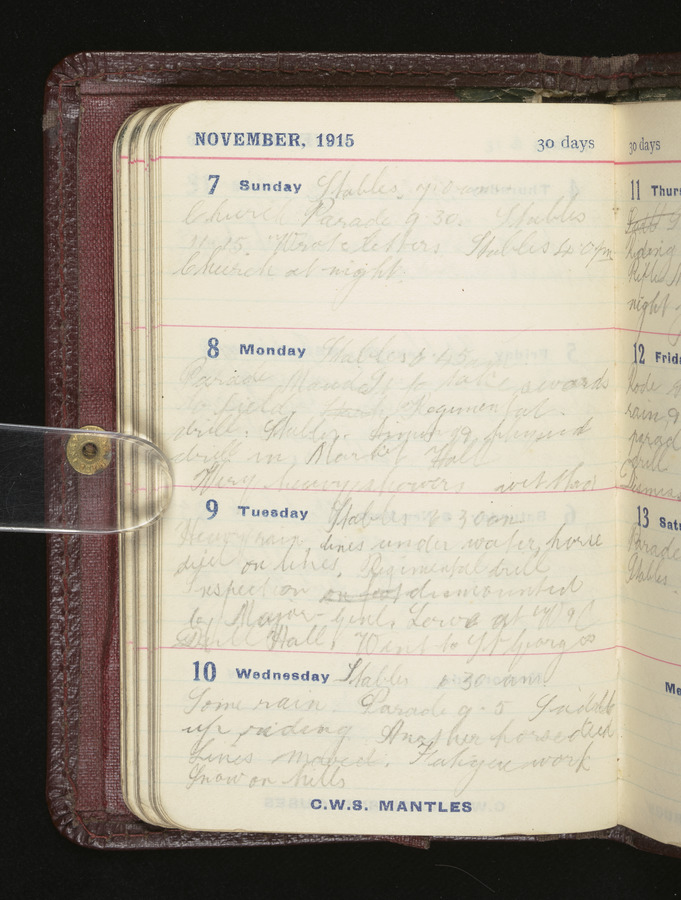 NOVEMBER, 1915 30 days
7 Sunday Stables 7.0 am
Church Parade 9.30. Stables
11.45. Wrote letters Stables 4.0 pm
Church at night.
8 Monday Stables 6.45
Parade to
to field, Regimental
drill. Stables.
drill in Market Hall
Very heavy showers
9 Tuesday Stables 6.30 am
Heavy rain, lines under water, horse
died on lines. Regimental drill
Inspection on foot dismounted
by Major-Genl. Lowe at
Drill Hall. Went to St Georges
10 Wednesday Stables 6.30 am
Some rain. Parade 9.5 Saddle
up riding Another horse died
Lines moved. Fatigue work
Snow on hills
C.W.S. MANTLES
30 days
11 Thur
Riding
Rifle
night
12 Frid
Rode
rain
parad
drill
Dismiss
13 Sat
Parade
Stables.
Me